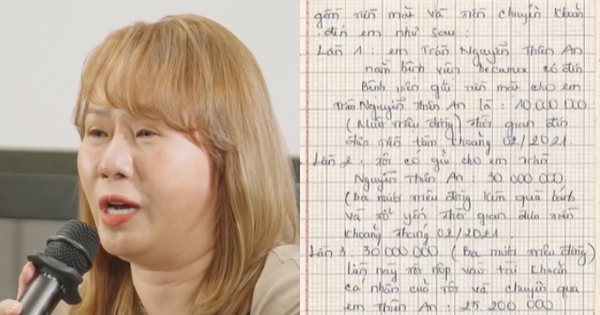 gồm tiền mặt và tiền chuyển khoản
đến em như sau:
Lần 1: em Trần Nguyễn Thiên An
nằm bệnh viện becamex có đến
Bệnh viện gửi tiền mặt cho em
Trần Nguyễn Thiên An là: 10 000 000
(Mười triệu đồng) thời gian đến
đưa tiền tầm khoảng 02/2021
Lần 2: tôi có gửi cho em
Nguyễn Thiên An: 30 000 000
(Ba mươi triệu đồng
và thời gian đưa tiền
khoảng tháng 02/2021
Lần 3: 30 000 000 (Ba mươi triệu đồng)
lần này tôi nộp vào tài khoản
cá nhân của tôi và chuyển qua
em Thiên An: 25 200 000